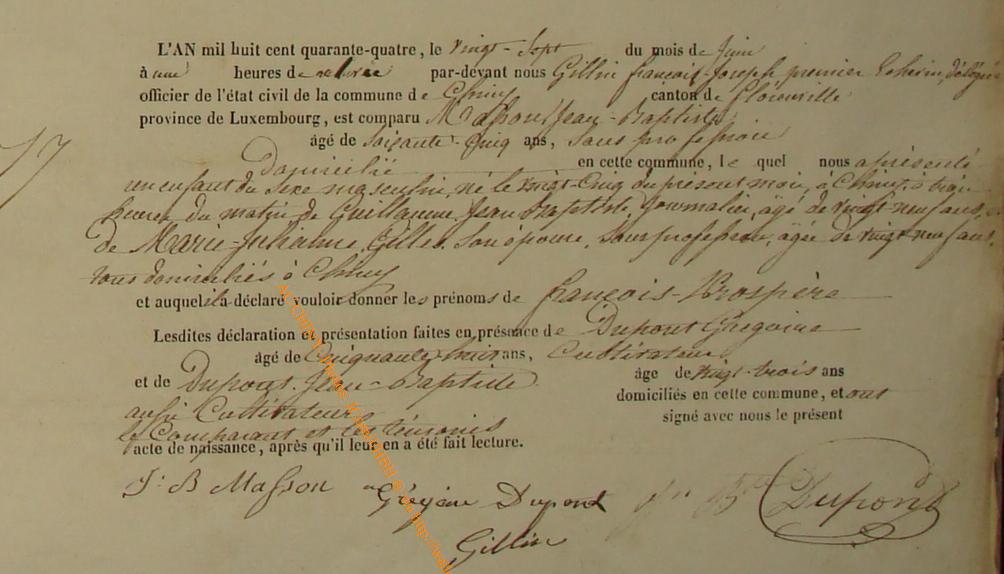 L'AN mil huit cent quarante-quatre, le vingt-sept du mois de Juin
à une heures de relevée par-devant nous Gillin françois-Joseph premier Echevin, délégué
officier de l'état civil de la commune de Chiny canton de florenville
province de Luxembourg, est comparu Masson Jean-Baptiste
âgé de soixante-cinq ans, sans profession
17
Domicilié en cette commune, le quel nous a présenté
un enfant du Sexe masculin, né le vingt-cinq du présent mois, à Chiny, à trois
heures du matin de Guillaume, Jean Baptiste, Journalier, âgé de vingt-neuf ans, et
de Marie-Julianne, Gilles, son épouse, sans profession, âgée de vingt neuf ans,
tous domiciliés à Chiny
et auquel il a déclaré vouloir donner les prénoms de françois-Prospère
Lesdites déclaration et présentation faites en présence de Dupont Grégoire
âgé de Cinquante-huit ans, Cultivateur
et de Dupont, Jean-Baptiste âge de vingt-trois ans
domiciliés en cette commune, et ont
aussi Cultivateur
signé avec nous le présent
le Comparant et les témoins
acte de naissance, après qu'il leur en a été fait lecture.
J. B Masson Dupond Dupond
Gillin